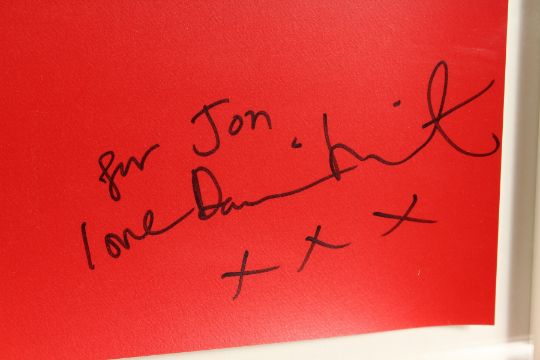 for Jon.
love Damien Hirst
x x x